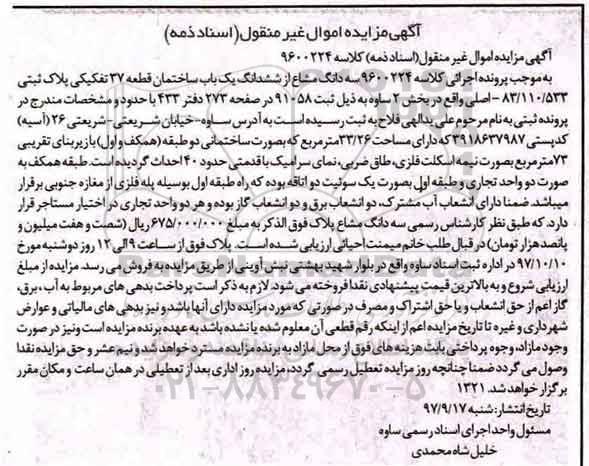 آگهی مزایده اموال غیر منقول (اسناد ذمه)
آگهی مزایده اموال غیر منقول (اسناد ذمه) کلاسه ۹۶۰۰۲۲۴
به موجب پرونده اجرائی کلاسه ۹۶۰۰۲۲۴ سه دانگ مشاع از ششدانگ یک باب ساختمان قطعه ۳۷ تفکیکی پلاک ثبتی
۸۳/۱۱۰/۵۳۳ - اصلی واقع در بخش ۲ ساوه به ذیل ثبت ۹۱۰۵۸ در صفحه ۲۷۳ دفتر ۴۳۳ با حدود و مشخصات مندرج در
پرونده ثبتی به نام مرحوم علی یدالهی فلاح به ثبت رسیده است به آدرس ساوه-خیابان شریعتی-شریعتی ۲۶ (آسیه)
کدپستی ۳۹۱۸۶۳۷۹۸۷ که دارای مساحت ۳۳/۲۶ متر مربع که بصورت ساختمانی دو طبقه (همکف و اول) با زیر بنای تقریبی
۷۳ متر مربع بصورت نیمه اسکلت فلزی، طاق ضربی، نمای سرامیک با قدمتی حدود ۴۰ احداث گردیده است. طبقه همکف به
صورت دو واحد تجاری و طبقه اول بصورت یک سوئیت دو اتاقه بوده که راه طبقه اول بوسیله پله فلزی از مغازه جنوبی برقرار
میباشد. ضمنا دارای انشعاب آب مشترک، دو انشعاب برق و دو انشعاب گاز بوده و هر دو واحد تجاری در اختیار مستاجر قرار
دارد. که طبق نظر کارشناس رسمی سه دانگ مشاع پلاک فوق الذکر به مبلغ ۶۷۵/۰۰۰/۰۰۰ ریال (شصت و هفت میلیون و
پانصد هزار تومان) در قبال طلب خانم میمنت احیائی ارزیابی شده است. پلاک فوق از ساعت ۹ الی ۱۲ روز دوشنبه مورخ
۹۷/۱۰/۱۰ در اداره ثبت اسناد ساوه واقع در بلوار شهید بهشتی نبش آوینی از طریق مزایده به فروش می رسد. مزایده از مبلغ
ارزیابی شروع و به بالاترین قیمت پیشنهادی نقدا فروخته می شود. لازم به ذکر است پرداخت بدهی های مربوط به آب، برق،
گاز اعم از حق انشعاب و یا حق اشتراک و مصرف در صورتی که مورد مزایده دارای آنها باشد و نیز بدهی های مالیاتی و عوارض
شهرداری و غیره تا تاریخ مزایده اعم از اینکه رقم قطعی آن معلوم شده یا نشده باشد به عهده برنده مزایده است و نیز در صورت
وجود مازاد، وجوه پرداختی بابت هزینه های فوق از محل مازاد به برنده مزایده مسترد خواهد شد و نیم عشر و حق مزایده نقدا
وصول می گردد ضمنا چنانچه روز مزایده تعطیل رسمی گردد، مزایده روز اداری بعد از تعطیلی در همان ساعت و مکان مقرر
برگزار خواهد شد. ۱۳۲۱
۰۲۱-۸۸۳۴۹۶۷۰-۵
تاریخ انتشار: شنبه ۹۷/۹/۱۷
مسئول واحد اجرای اسناد رسمی ساوه
خلیل شاه محمدی